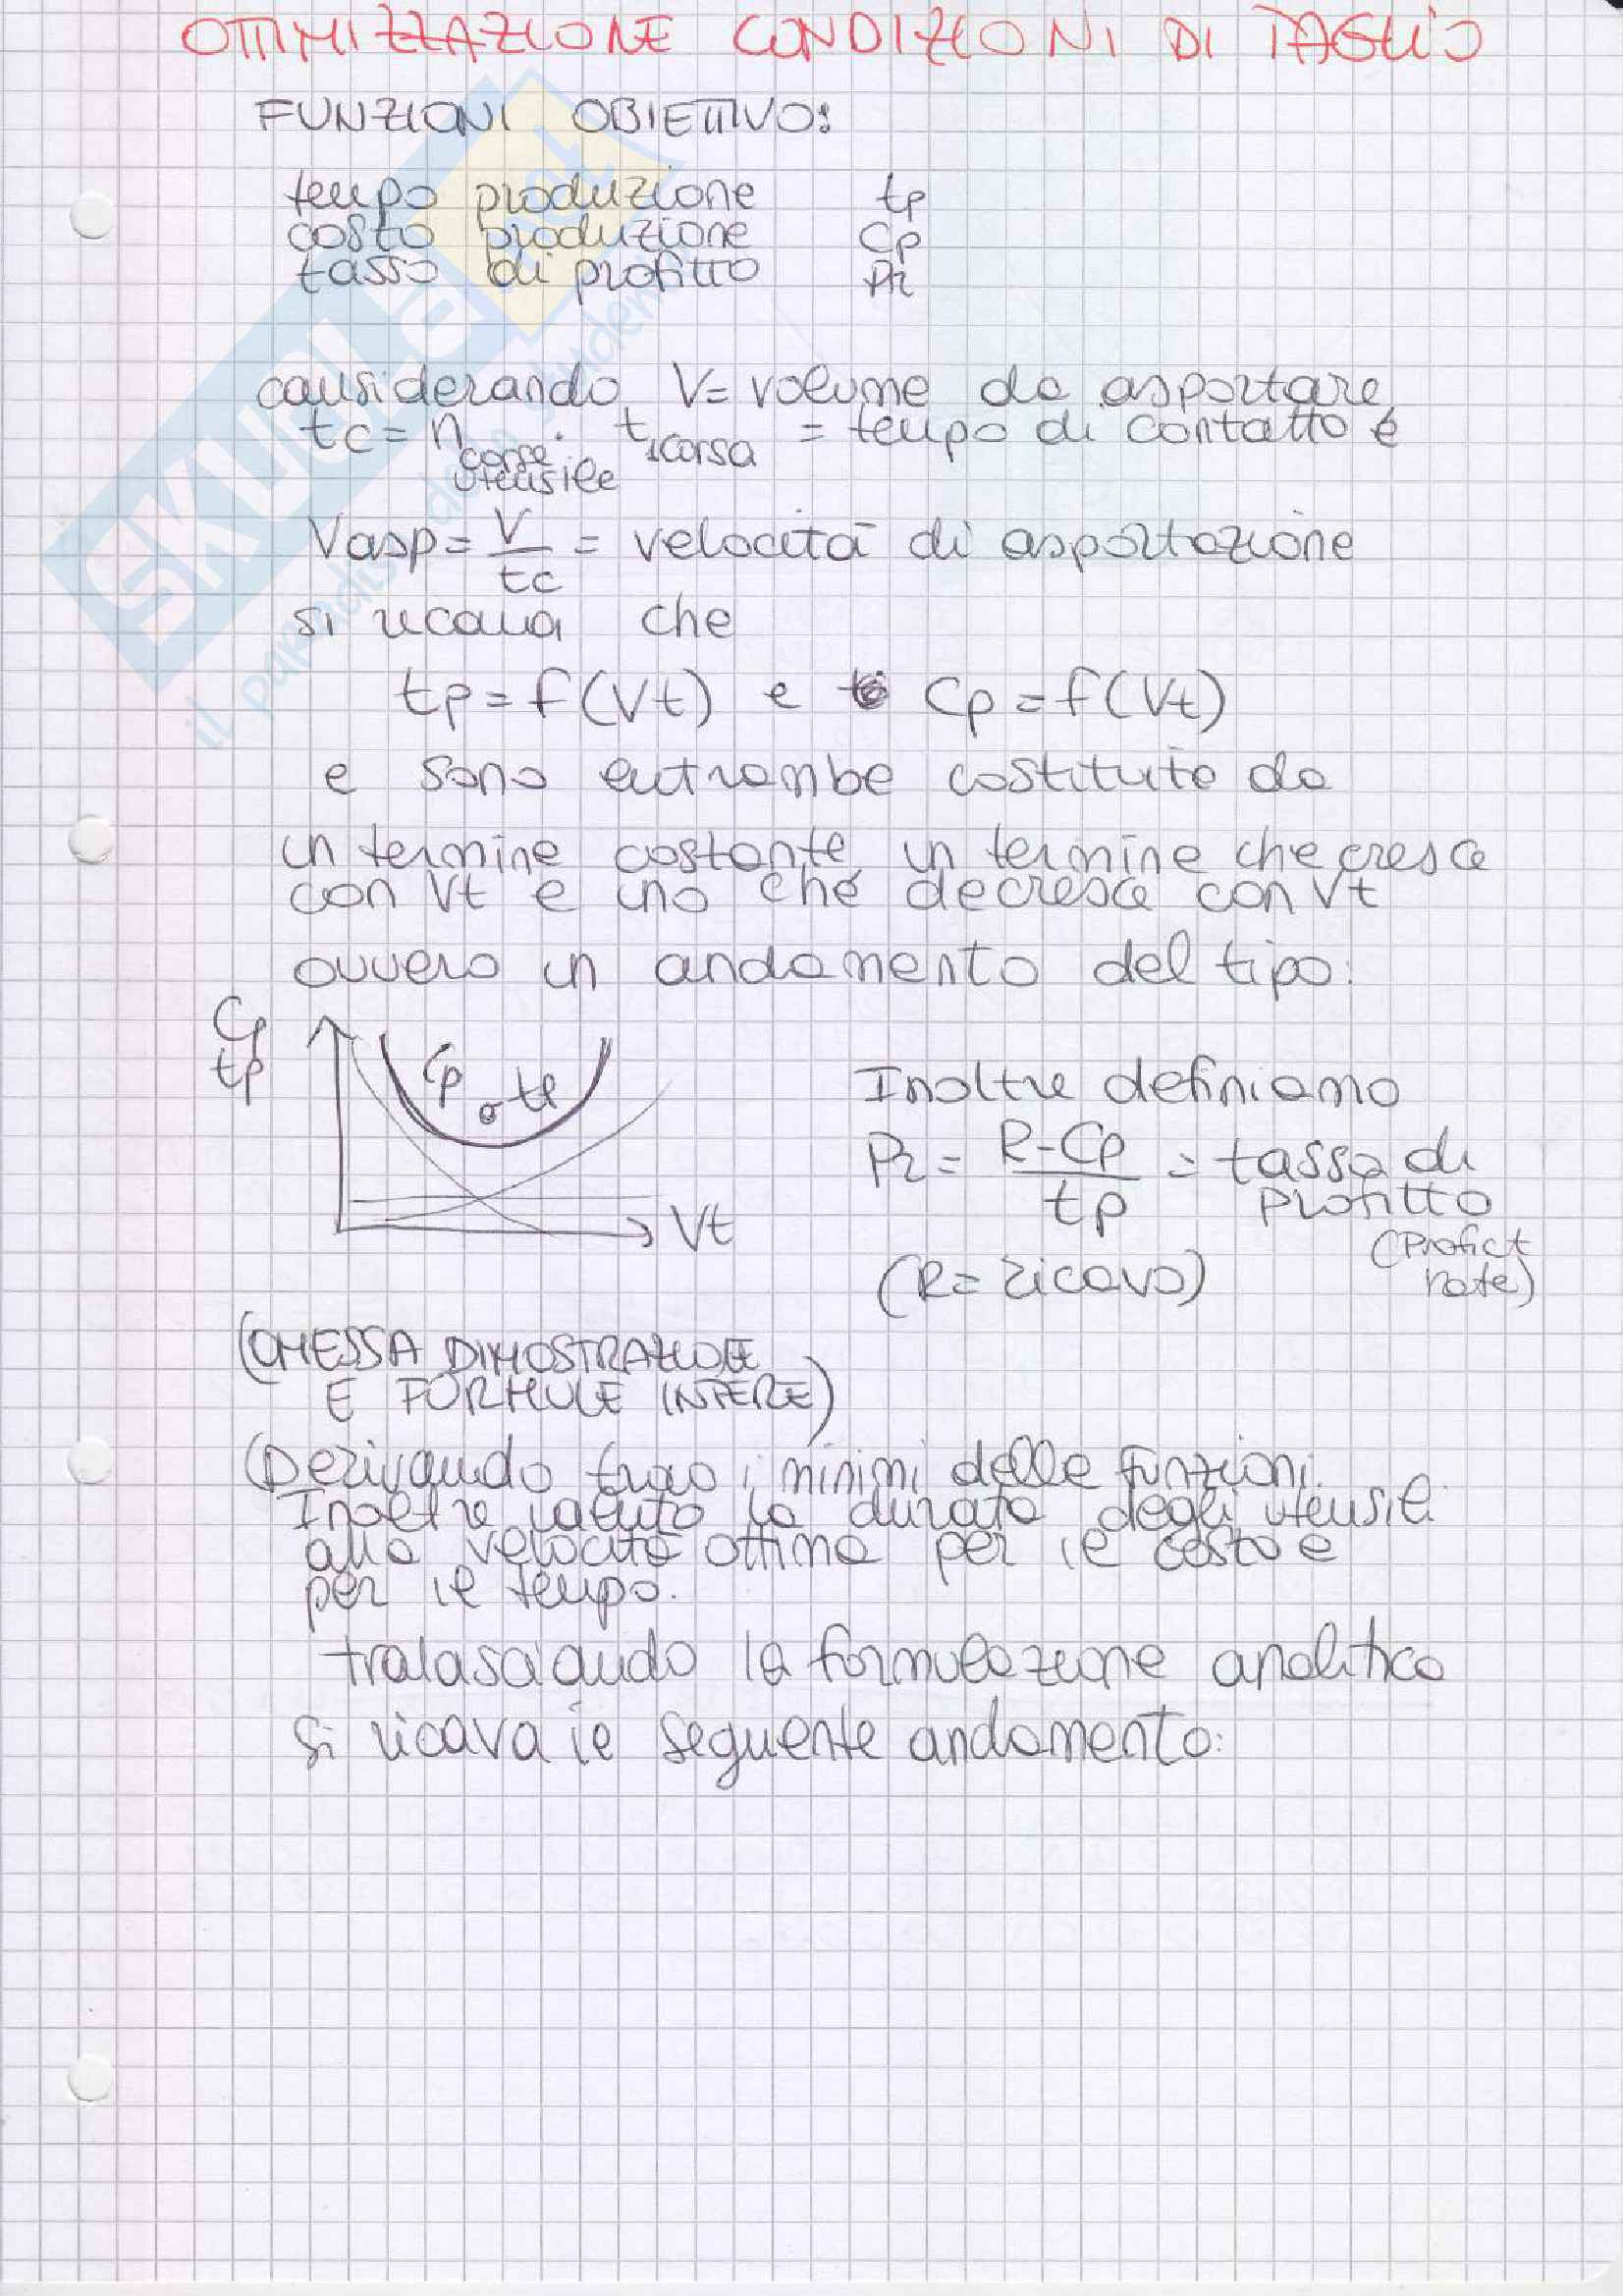 OTTIMIZZAZIONE CONDIZIONI DI TAGLIO
FUNZIONI OBIETTIVO:
tempo produzione tp
costo produzione Cp
tasso di profitto Pr
considerando V = volume da asportare
tc = n corse utensile · t 1 corsa = tempo di contatto e
Vasp = V/tc = velocità di asportazione
si ricava che
tp = f(Vt) e Cp = f(Vt)
e sono entrambe costituite da
un termine costante, un termine che cresce
con Vt e uno che decresce con Vt
ovvero un andamento del tipo:
Cp
tp
Cp o tp
Vt
Inoltre definiamo
Pr = R-Cp/tp = tasso di profitto
(Profict rate)
(R = ricavo)
(OMESSA DIMOSTRAZIONE
E FORMULE INTERE)
(Derivando trovo i minimi delle funzioni.
Inoltre valuto la durata degli utensili
alla velocità ottima per il costo e
per il tempo.
tralasciando la formulazione analitica
si ricava il seguente andamento:
SKUOLA.net
il paradiso dello studente